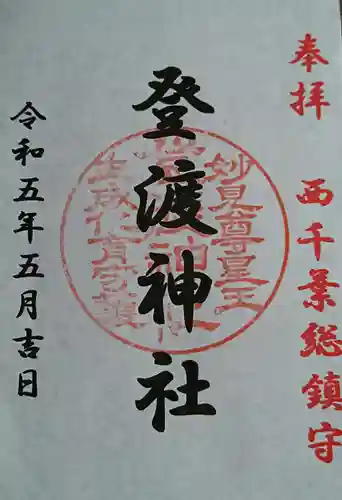 奉拝　西千葉総鎮守
登渡神社
妙見尊星王
令和五年五月吉日